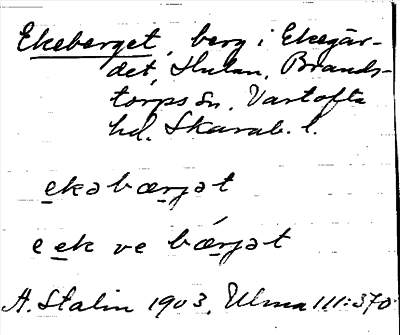 Ekeberget, berg i Ekegär-
det, Hulan, Brands-
torps sn, Vartofta
hd. Skarab. l.
ekəbærjət
e ek ve bǽrjət
A. Stalin 1903, Ulma 111:370